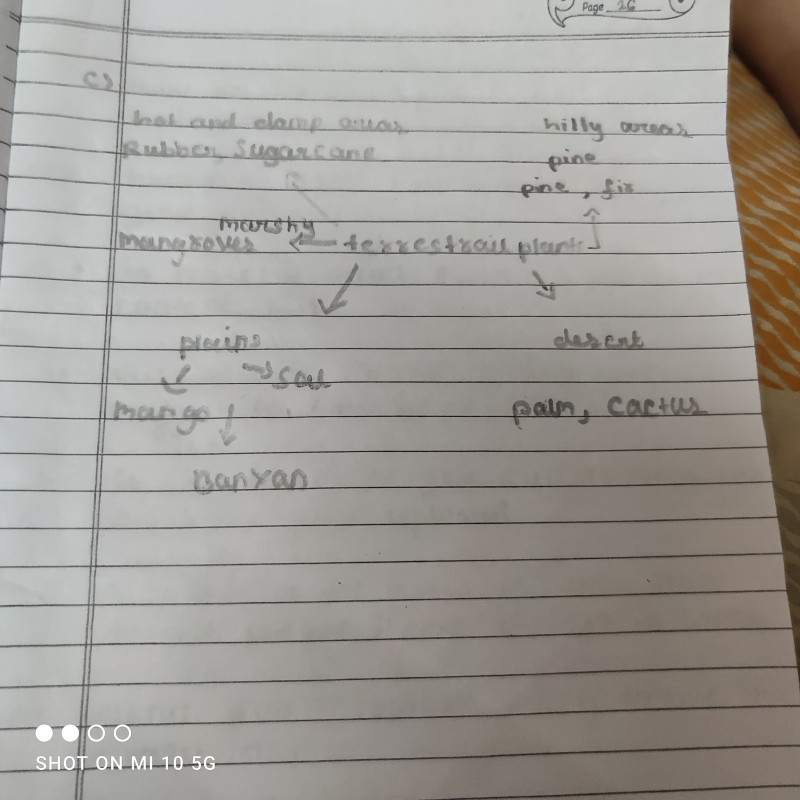 Page 26
c)
hot and damp areas
Rubber, Sugarcane
hilly areas
pine
pine, fir
marshy
mangroves
terrestrail plants
plains
sal
mango
Banyan
desert
palm, cactus
SHOT ON MI 10 5G